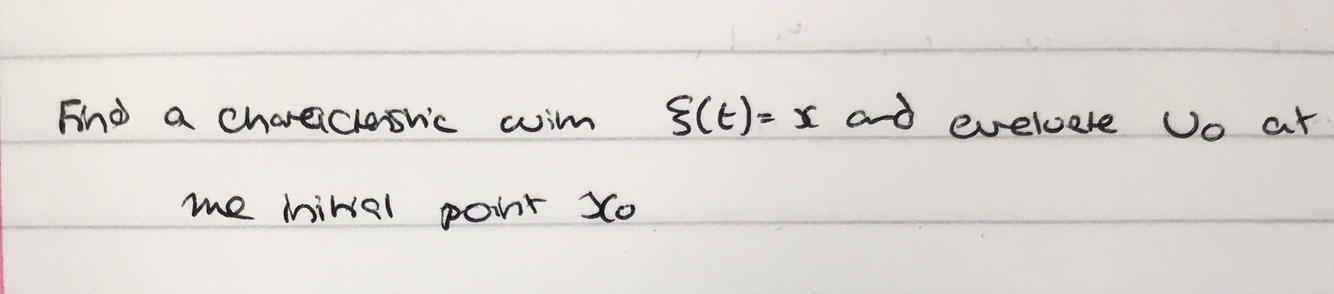 Find a characteristic with ξ(t) = x and evaluate U₀ at
the initial point x₀